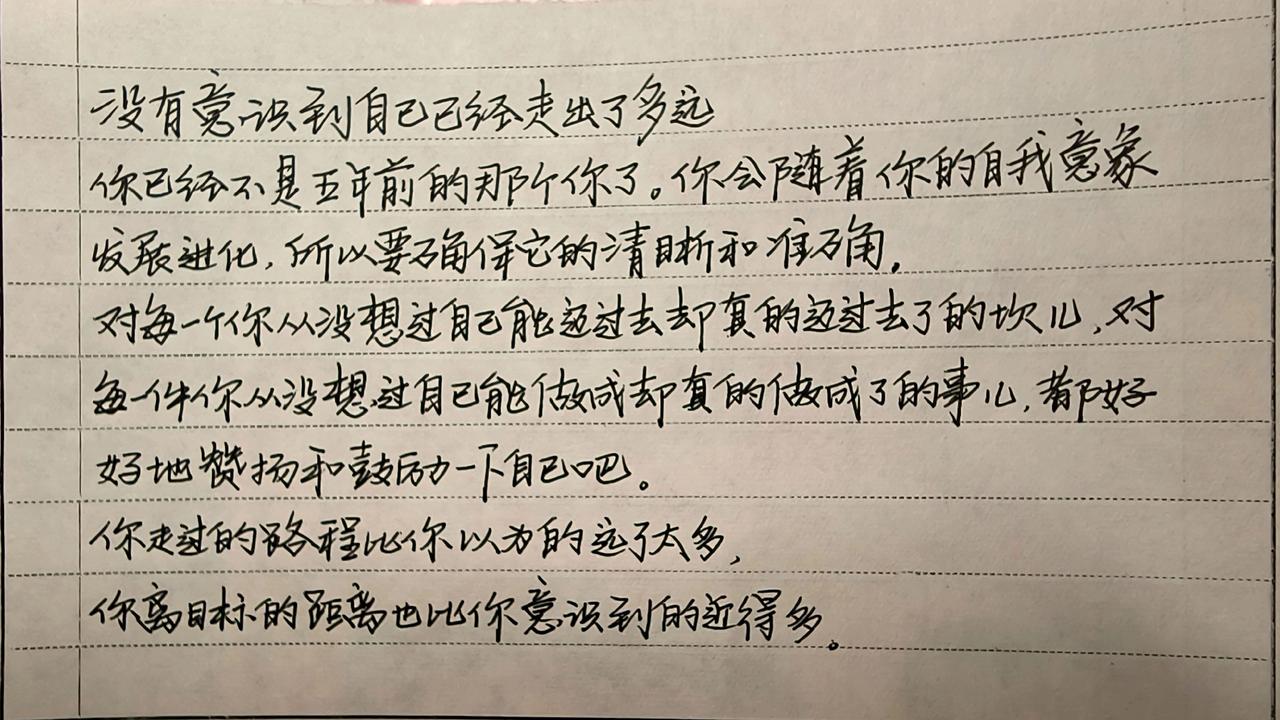 没有意识到自己已经走出了多远
你已经不是五年前的那个你了。你会随着你的自我意象
发展进化，所以要确保它的清晰和准确。
对每一个你从没想过自己能迈过去却真的迈过去了的坎儿，对
每一件你从没想过自己能做成却真的做成了的事儿，都好
好地赞扬和鼓励一下自己吧。
你走过的路程比你以为的远了太多，
你离目标的距离也比你意识到的近得多。